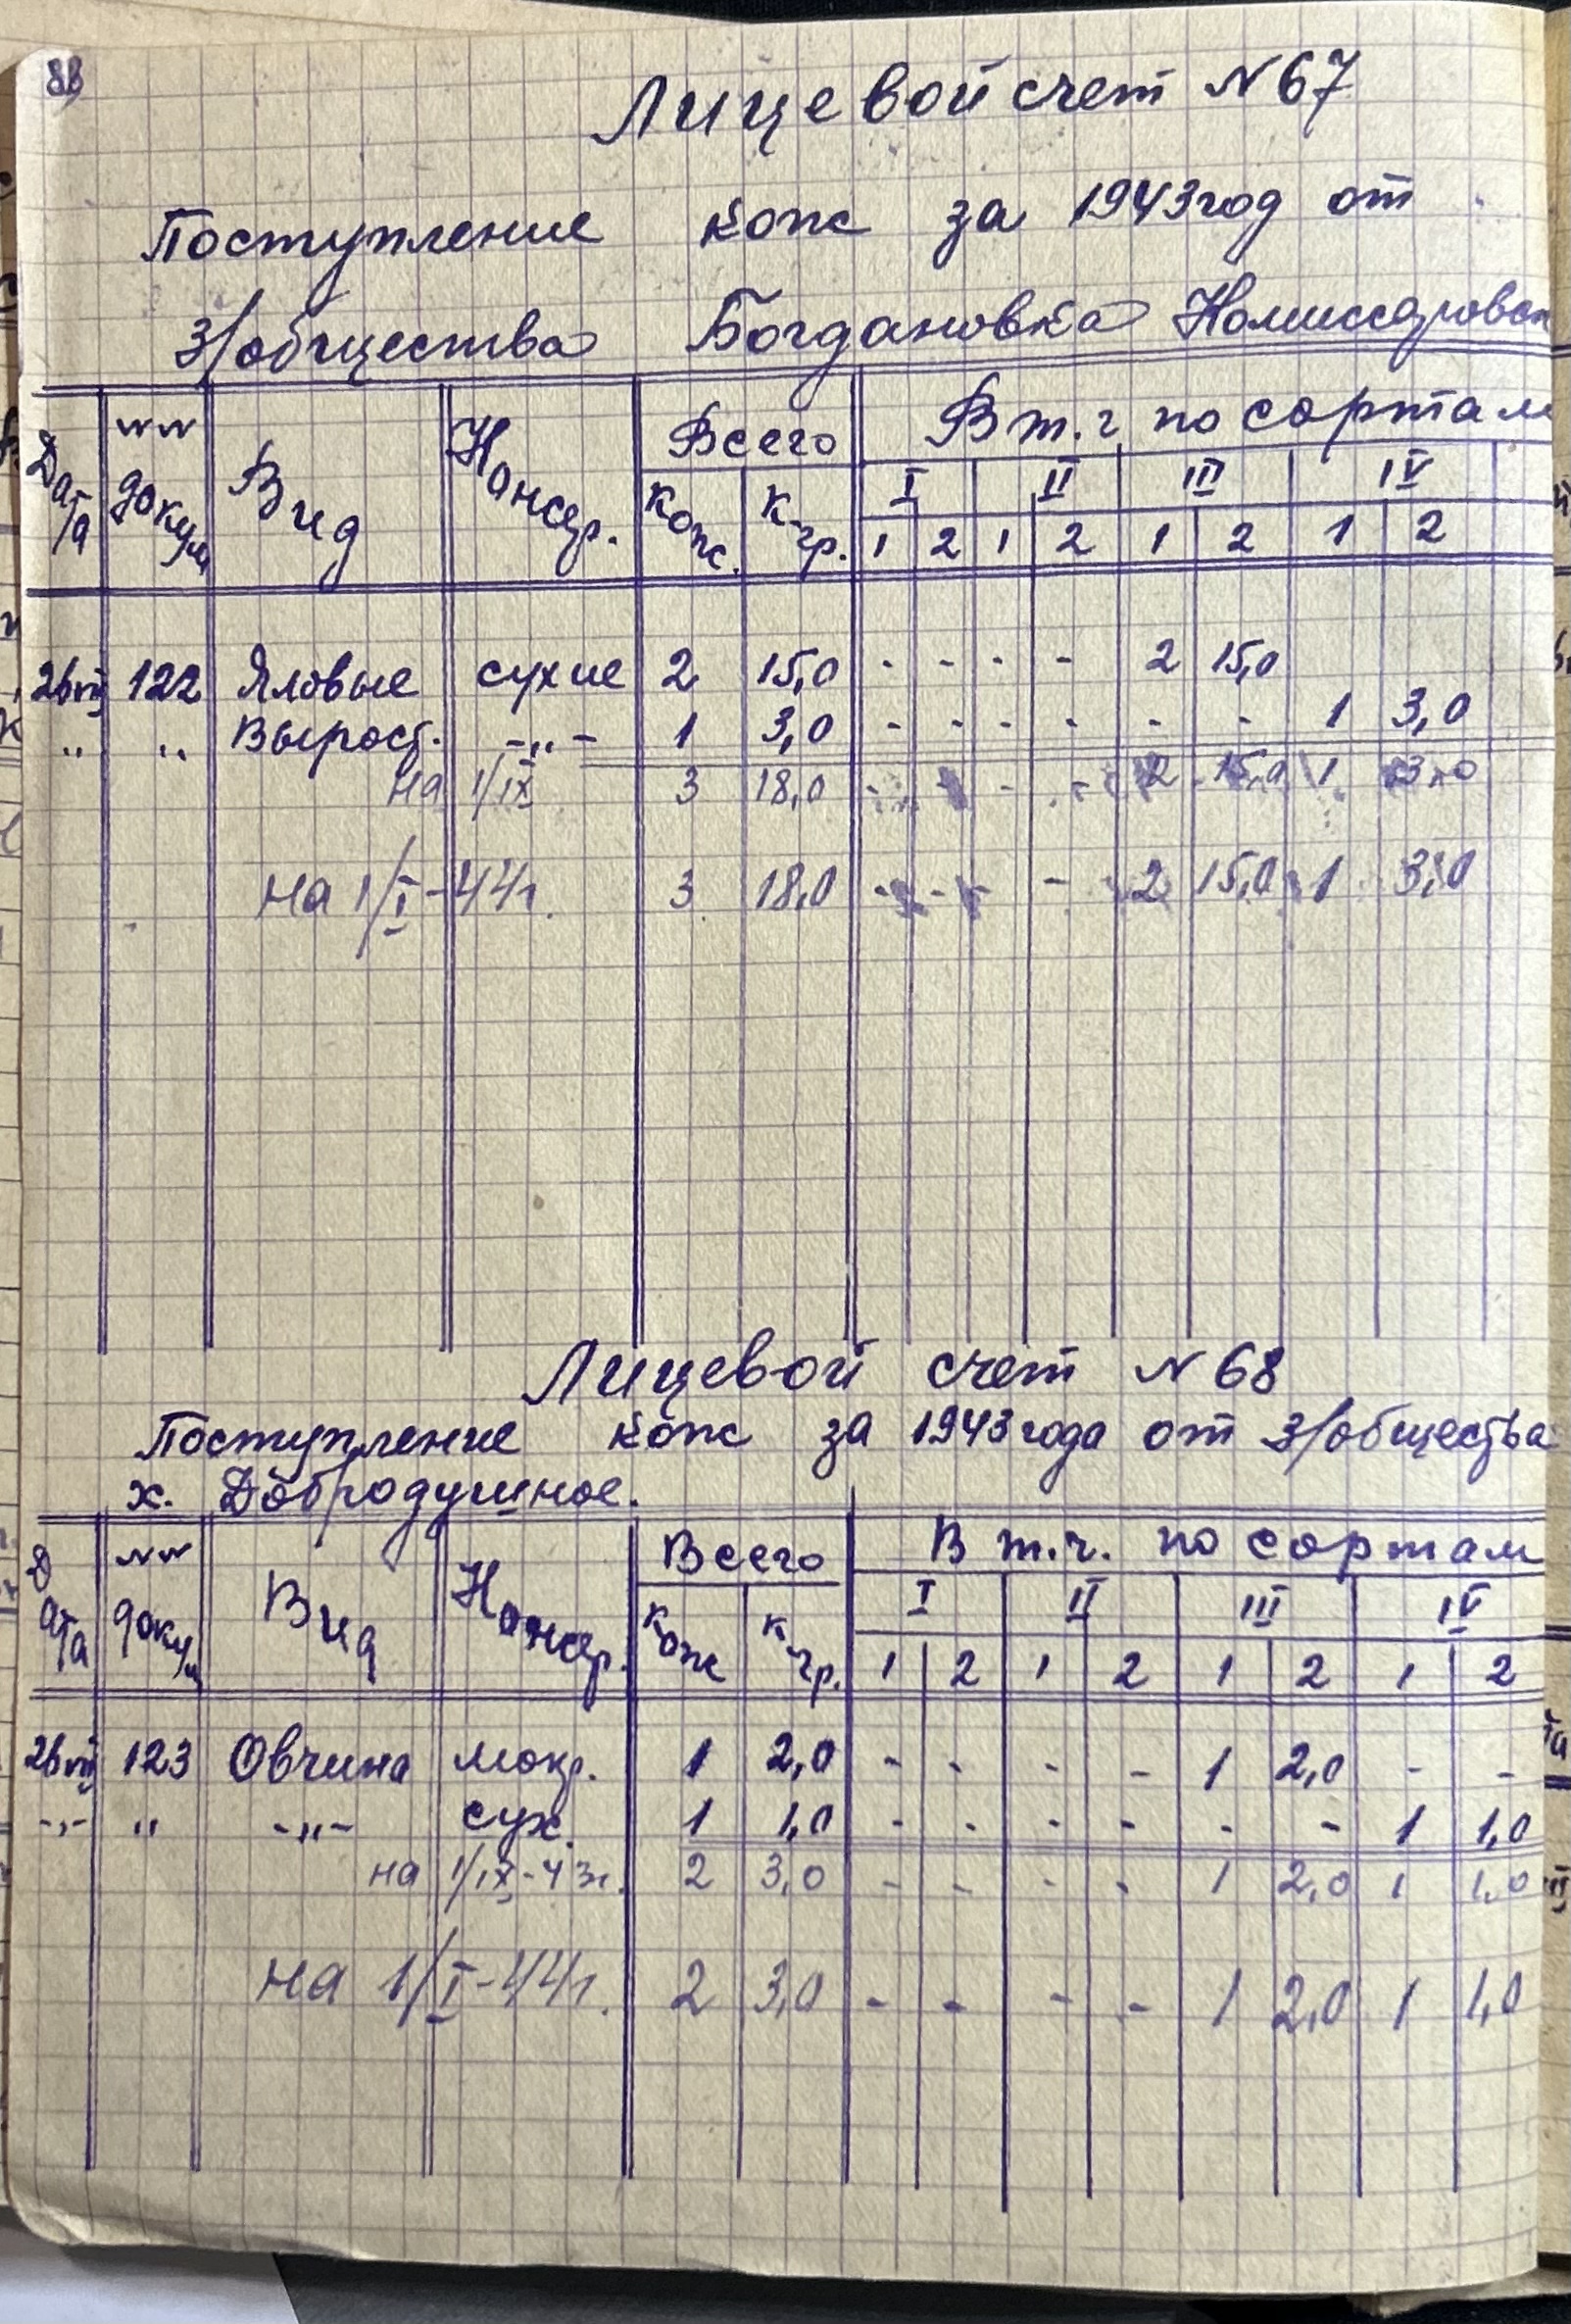 88
Лицевой счет N 67
Поступление кож за 1943 год от
З/общества Богдановка
Дата NN докум Вид Консер. Всего В т.ч по сортам
кож. к-гр. I II III IV
1 2 1 2 1 2 1 2
26 VIII 122 Яловые сухие 2 15,0 - - - - 2 15,0
" " Вырост. -"- 1 3,0 - - - - - - 1 3,0
на 1/IX 3 18,0 - - - - 2 15,0 1 3,0
на 1/I-44г. 3 18,0 - - - - 2 15,0 1 3,0
Лицевой счет N 68
Поступление кож за 1943 года от З/общества
х. Добродушное.
Дата NN докум Вид Консер. Всего В т.ч. по сортам
кож к-гр. I II III IV
1 2 1 2 1 2 1 2
26 VIII 123 Овчина мокр. 1 2,0 - - - - 1 2,0 - -
-"- " -"- сух. 1 1,0 - - - - - - 1 1,0
на 1/IX-43г. 2 3,0 - - - - 1 2,0 1 1,0
на 1/I-44г. 2 3,0 - - - - 1 2,0 1 1,0